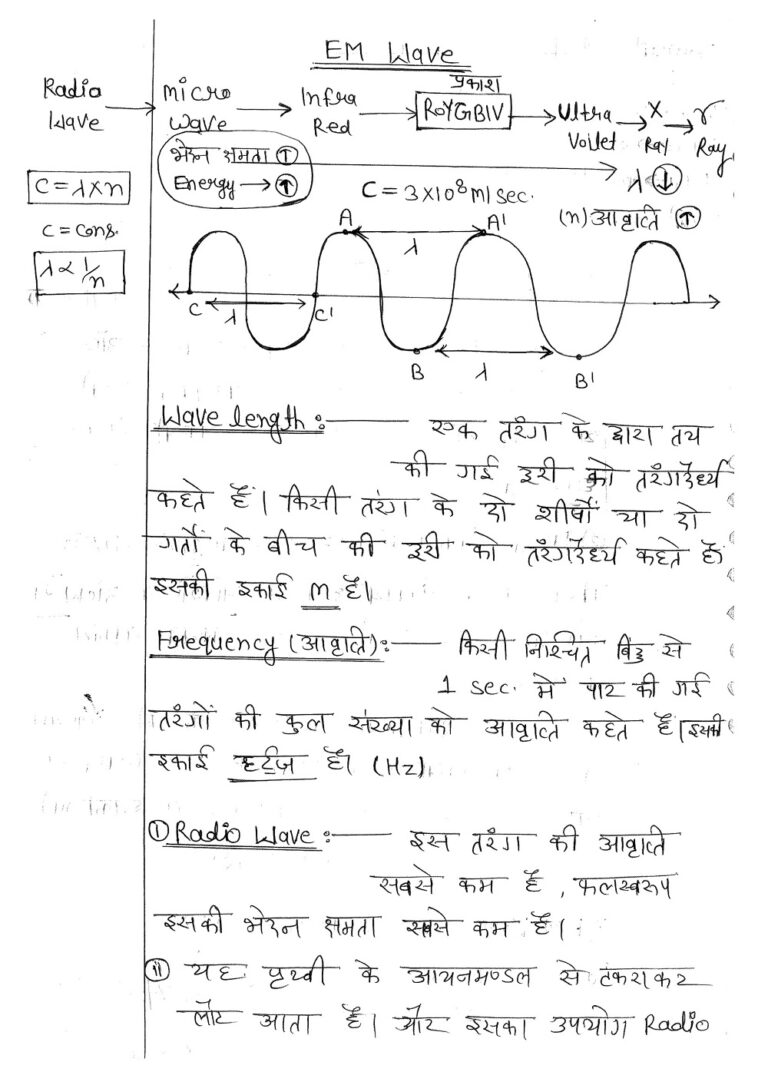 EM Wave
प्रकाश
Radio Wave → Micro wave → Infra Red → ROYGBIV → Ultra Voilet → X Ray → γ Ray
भेदन क्षमता ↑
Energy → ↑
λ ↓
C = λ × n
C = 3×10⁸ m/sec.
(n) आवृत्ति ↑
C = Cons.
λ ∝ 1/n
A λ A'
C λ C'
B λ B'
Wave length :— एक तरंग के द्वारा तय
की गई दूरी को तरंगदैर्ध्य
कहते हैं। किसी तरंग के दो शीर्षों या दो
गर्तों के बीच की दूरी को तरंगदैर्ध्य कहते हैं।
इसकी इकाई m है।
Frequency (आवृत्ति) :— किसी निश्चित बिंदु से
1 sec. में पार की गई
तरंगों की कुल संख्या को आवृत्ति कहते हैं। इसकी
इकाई हर्ट्ज है। (Hz)
① Radio Wave :— इस तरंग की आवृत्ति
सबसे कम है, फलस्वरूप
इसकी भेदन क्षमता सबसे कम है।
ⅱ यह पृथ्वी के आयनमण्डल से टकराकर
लौट आता है। और इसका उपयोग Radio